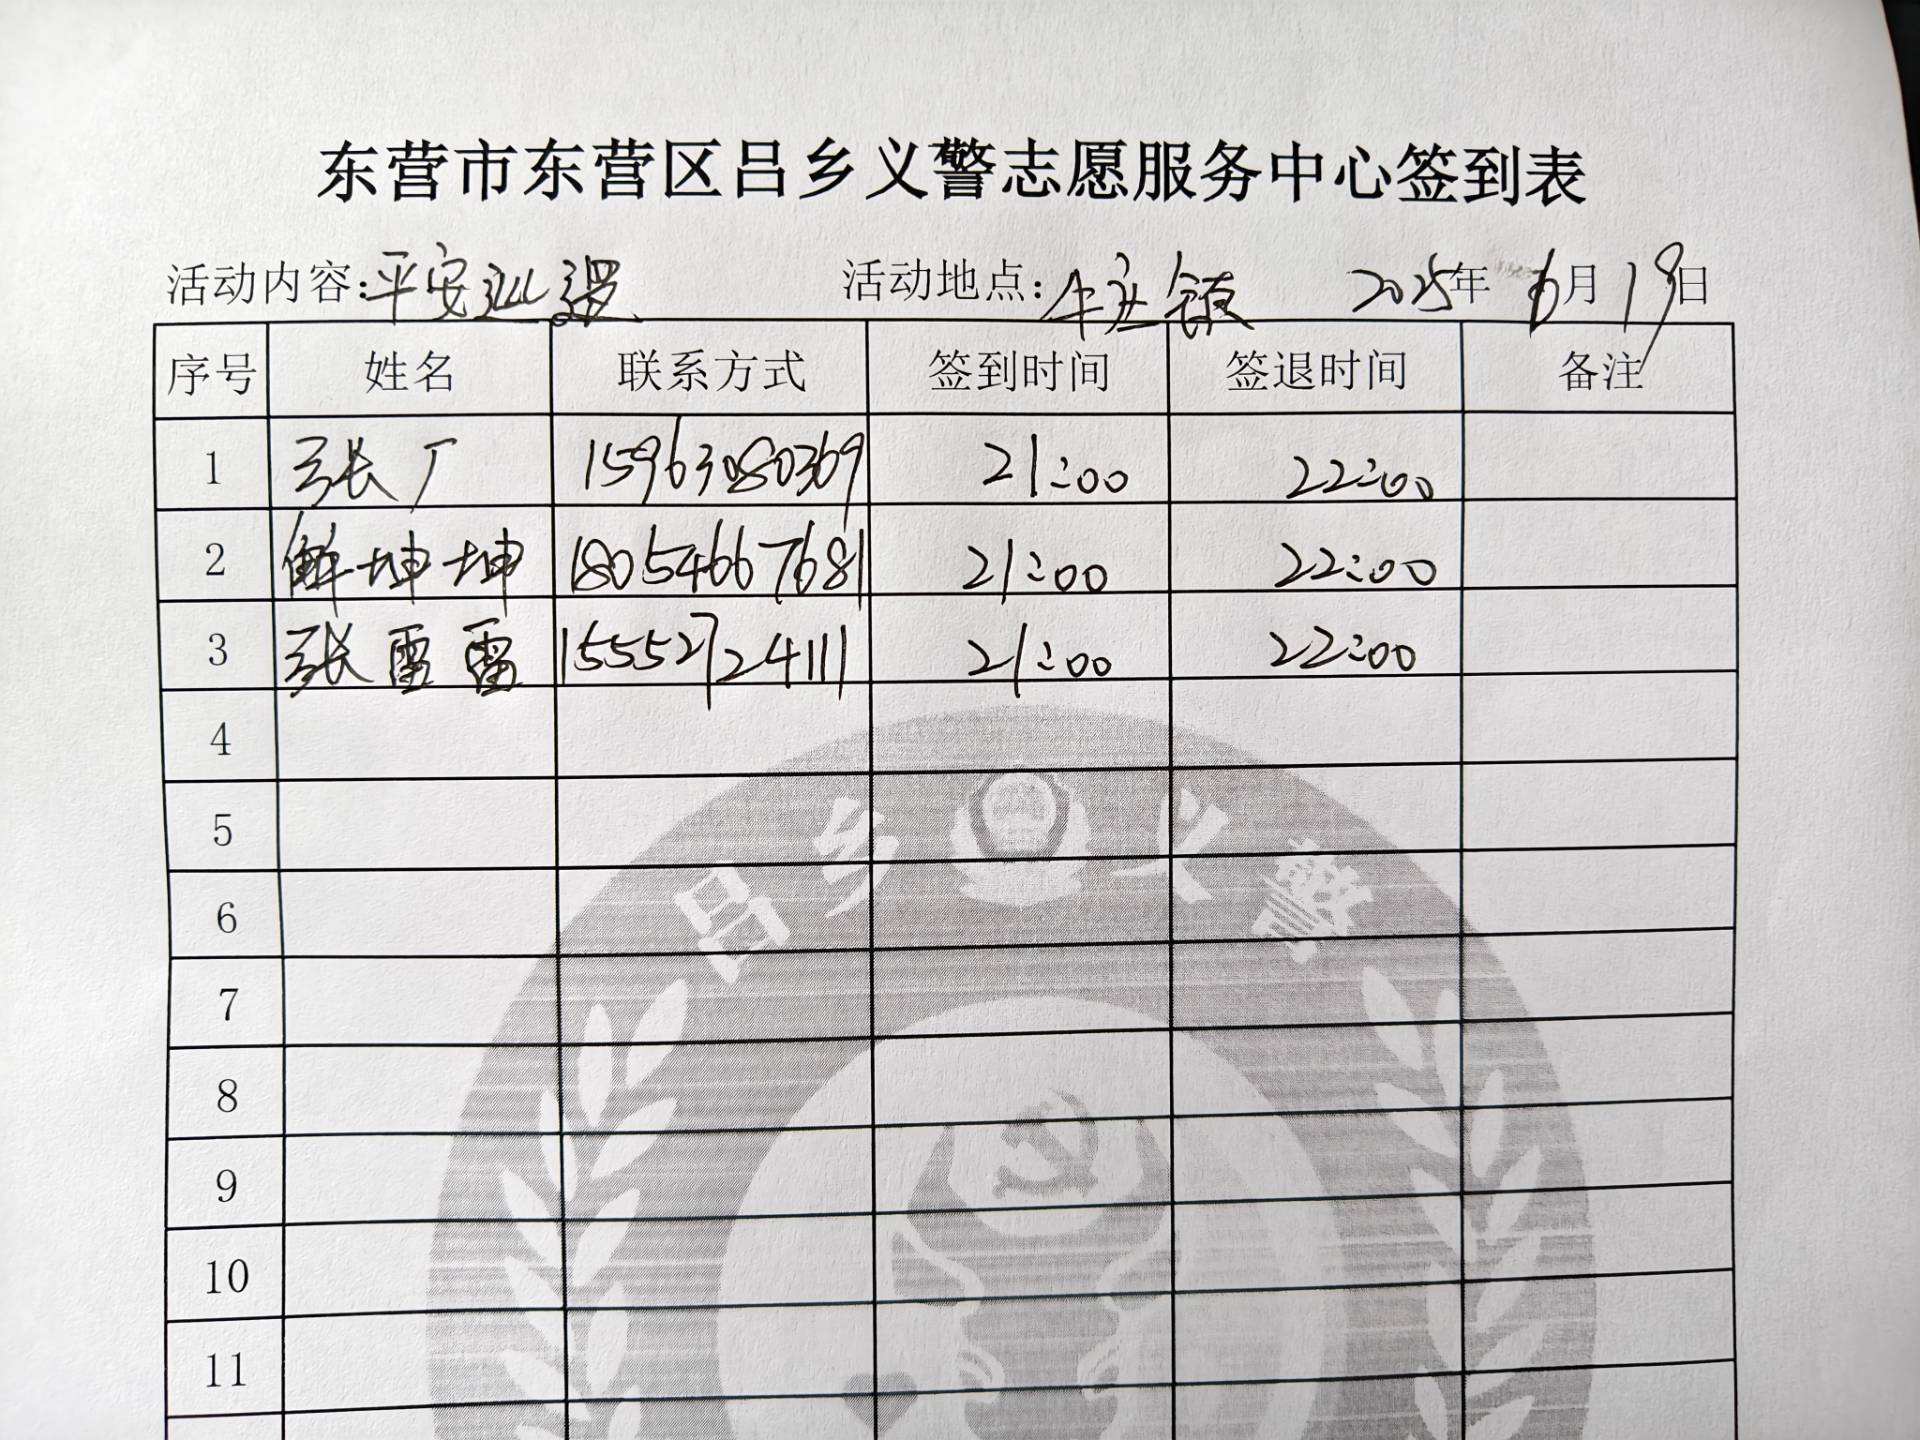 东营市东营区吕乡义警志愿服务中心签到表
活动内容:平安巡逻 活动地点:牛庄镇 2025年6月19日
序号 姓名 联系方式 签到时间 签退时间 备注
1 张广 15963080369 21:00 22:00
2 解坤坤 18054667681 21:00 22:00
3 张雷雷 15552724111 21:00 22:00
4
5
6
7
8
9
10
11
吕乡义警